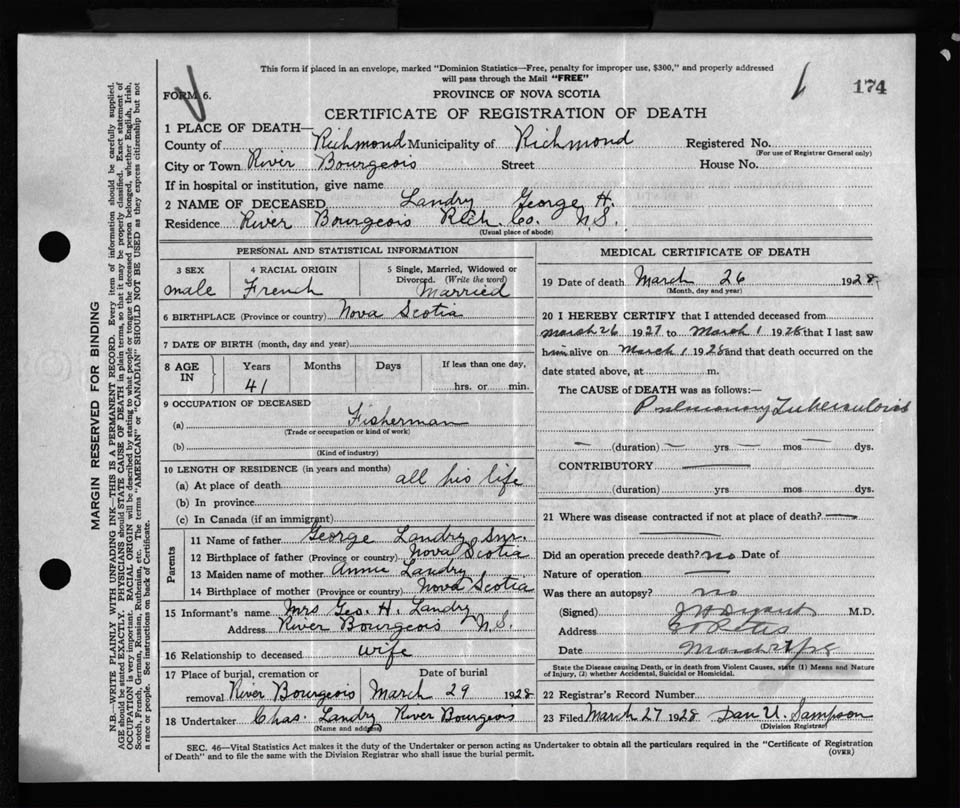 This form if placed in an envelope, marked "Dominion Statistics—Free, penalty for improper use, $300," and properly addressed
will pass through the Mail "FREE"
174
FORM 6.
PROVINCE OF NOVA SCOTIA
CERTIFICATE OF REGISTRATION OF DEATH
1 PLACE OF DEATH—
County of Richmond Municipality of Richmond Registered No.
(For use of Registrar General only)
City or Town River Bourgeois Street House No.
If in hospital or institution, give name
2 NAME OF DECEASED Landry George H.
Residence River Bourgeois Rich. Co. N.S.
(Usual place of abode)
PERSONAL AND STATISTICAL INFORMATION
3 SEX 4 RACIAL ORIGIN 5 Single, Married, Widowed or
Divorced. (Write the word)
male French Married
6 BIRTHPLACE (Province or country) Nova Scotia
7 DATE OF BIRTH (month, day and year)
8 AGE IN Years Months Days If less than one day,
41 hrs. or min.
9 OCCUPATION OF DECEASED
(a) Fisherman
(Trade or occupation or kind of work)
(b)
(Kind of industry)
10 LENGTH OF RESIDENCE (in years and months)
(a) At place of death all his life
(b) In province
(c) In Canada (if an immigrant)
Parents
11 Name of father George Landry Snr.
12 Birthplace of father (Province or country) Nova Scotia
13 Maiden name of mother Annie Landry
14 Birthplace of mother (Province or country) Nova Scotia
15 Informant's name Mrs Geo. H. Landry
Address River Bourgeois N.S.
16 Relationship to deceased wife
17 Place of burial, cremation or Date of burial
removal River Bourgeois March 29 1928
18 Undertaker Chas. Landry River Bourgeois
(Name and address)
MEDICAL CERTIFICATE OF DEATH
19 Date of death March 26 1928
(Month, day and year)
20 I HEREBY CERTIFY that I attended deceased from
March 26 1927 to March 1 1928 that I last saw
him alive on March 1 1928 and that death occurred on the
date stated above, at m.
The CAUSE of DEATH was as follows:—
Pulmonary Tuberculosis
— (duration) — yrs — mos — dys.
CONTRIBUTORY —
(duration) yrs mos dys.
21 Where was disease contracted if not at place of death? —
Did an operation precede death? no Date of
Nature of operation —
Was there an autopsy? no
(Signed) M.D.
Address
Date March
State the Disease causing Death, or in death from Violent Causes, state (1) Means and Nature
of Injury, (2) whether Accidental, Suicidal or Homicidal.
22 Registrar's Record Number
23 Filed March 27 1928 Dan U. Sampson
(Division Registrar)
SEC. 46—Vital Statistics Act makes it the duty of the Undertaker or person acting as Undertaker to obtain all the particulars required in the "Certificate of Registration
of Death" and to file the same with the Division Registrar who shall issue the burial permit.
(OVER)
MARGIN RESERVED FOR BINDING
N.B.—WRITE PLAINLY WITH UNFADING INK—THIS IS A PERMANENT RECORD. Every item of information should be carefully supplied.
AGE should be stated EXACTLY. PHYSICIANS should STATE CAUSE OF DEATH in plain terms, so that it may be properly classified. Exact statement of
OCCUPATION is very important. RACIAL ORIGIN will be described by stating to what people or tongue the deceased person belonged, whether English, Irish,
Scotch, French, German, Russian, Ruthenian, etc. The terms "AMERICAN" or "CANADIAN" SHOULD NOT BE USED as they express citizenship but not
a race or people. See instructions on back of Certificate.